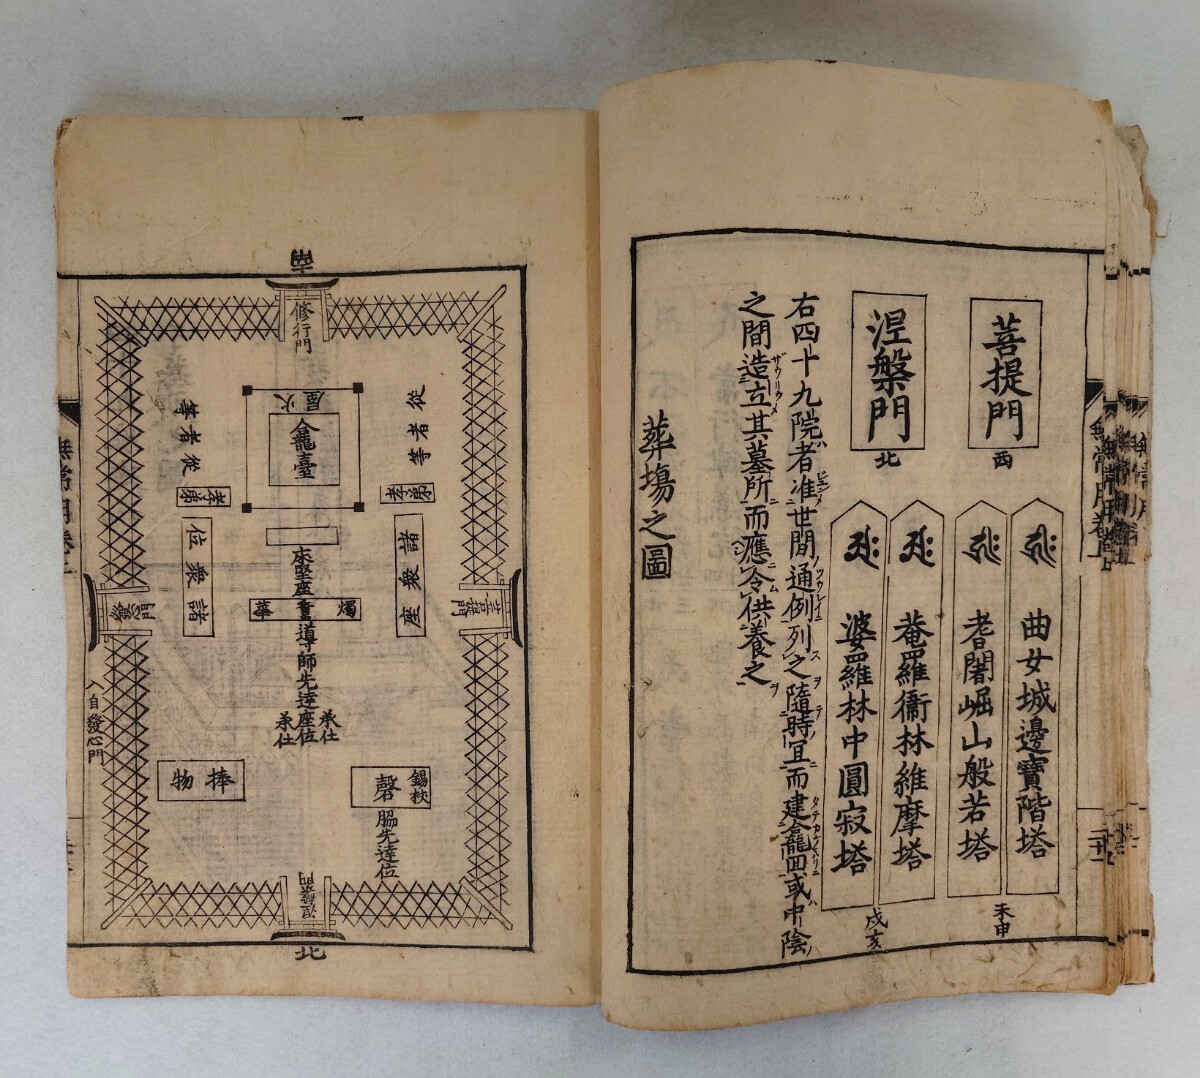 菩提門
西
曲女城邊寶階塔
耆闍崛山般若塔
未申
涅槃門
北
菴羅衞林維摩塔
婆羅林中圓寂塔
戌亥
右四十九院者准世間通例列之隨時冝而建龕回或中陰
之間造立其墓所而應令供養之
葬塲之圖
南
修行門
火屋
龕臺
從者等
從者等
孝弟
孝弟
諸衆座
諸衆位
床堅座
燭
華
導師先達座位
承仕
承仕
菩提門
發心門
入自發心門
捧物
錫杖
磬
脇先達位
涅槃門
北
無常用卷上